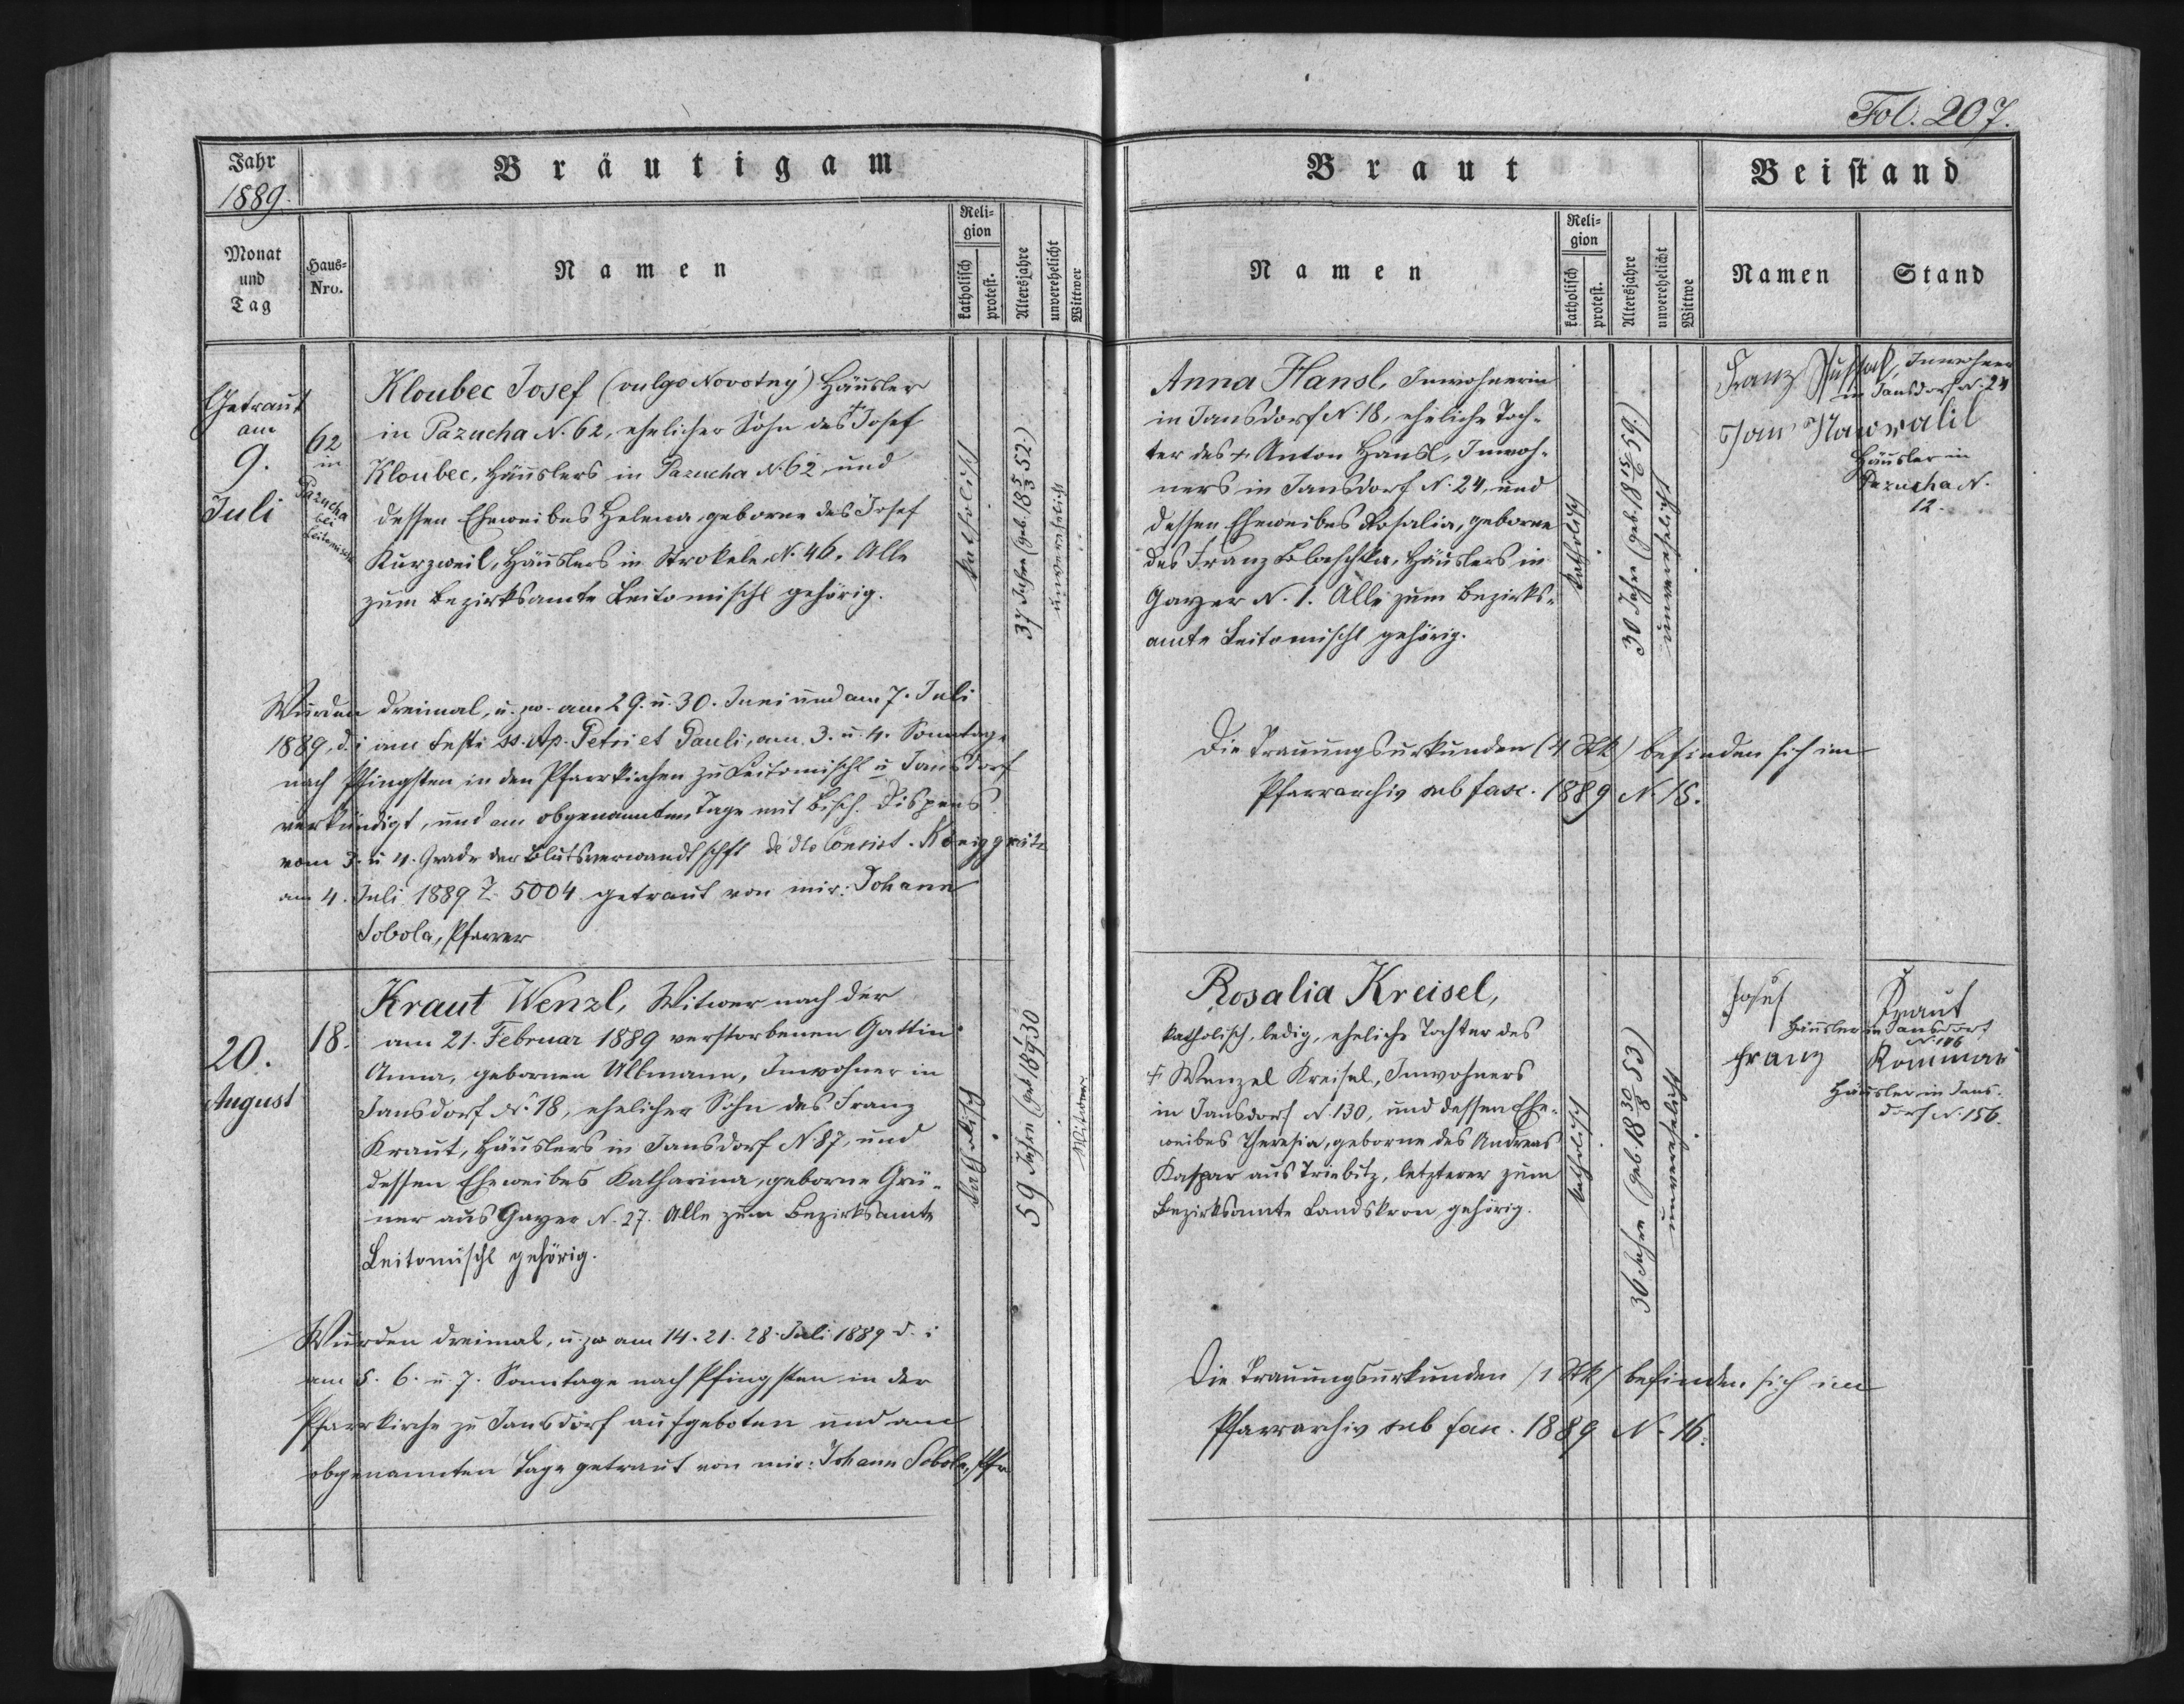 Fol. 207.
Jahr
1889.
Bräutigam
Braut
Beistand
Monat
und
Tag
Haus-
Nro.
Namen
Reli-
gion
katholisch
protest.
Altersjahre
unverehelicht
Wittwer
Namen
Reli-
gion
katholisch
protest.
Altersjahre
unverehelicht
Wittwe
Namen
Stand
Getraut
am
9.
Juli
62
in
Pazucha
bei
Leitomischl
Kloubec Josef (vulgo Novotný) Häusler
in Pazucha N. 62, ehelicher Sohn des + Josef
Kloubec, Häuslers in Pazucha N. 62 und
dessen Eheweibes Helena, geborne des Josef
Kurzweil, Häuslers in Strokele N. 46. Alle
zum Bezirksamte Leitomischl gehörig.
katholisch
37 Jahre (geb. 18 5/3 52.)
unverehelicht
Wurden dreimal, u. zw. am 29. u. 30. Juni und am 7. Juli
1889, d. i am Feste ss. Ap. Petri et Pauli, am 3. u. 4. Sonntage
nach Pfingsten in den Pfarrkirchen zu Leitomischl u Jansdorf
verkündigt, und am obgenannten Tage mit Bisch. Dispens
vom 3. u 4. Grade der Blutsverwandtschft de dto Consist. Königgrätz
am 4. Juli 1889 Z. 5004 getraut von mir: Johann
Sobola, Pfarrer
Anna Hansl, Inwohnerin
in Jansdorf N. 18, eheliche Toch-
ter des + Anton Hansl, Inwoh-
ners in Jansdorf N. 24, und
dessen Eheweibes Rosalia, geborne
des Franz Blaschka, Häuslers in
Gayer N. 1. Alle zum Bezirks-
amte Leitomischl gehörig.
katholisch
30 Jahre (geb. 18 15/6 59.)
unverehelicht
Franz
Inwohner
in Jansdorf N. 24
Jan Nawratil
Häusler in
Pazucha N.
12.
Die Trauungsurkunden (4 Stk) befinden sich im
Pfarrarchiv sub fasc. 1889 N. 15.
20.
August
18.
Kraut Wenzl, Witwer nach der
am 21. Februar 1889 verstorbenen Gattin
Anna, gebornen Ullmann, Inwohner in
Jansdorf N. 18, ehelicher Sohn des Franz
Kraut, Häuslers in Jansdorf N. 87, und
dessen Eheweibes Katharina, geborne Grü-
ner aus Gayer N. 27. Alle zum Bezirksamte
Leitomischl gehörig.
katholisch
59 Jahre (geb 18 1/9 30
Witwer
Wurden dreimal, u. zw am 14. 21. 28. Juli 1889 d. i
am 5. 6. u. 7. Sonntage nach Pfingsten in der
Pfarrkirche zu Jansdorf aufgeboten und am
obgenannten Tage getraut von mir: Johann Sobola, Pfr
Rosalia Kreisel,
katholisch, ledig, eheliche Tochter des
+ Wenzel Kreisel, Inwohners
in Jansdorf N. 130, und dessen Ehe-
weibes Theresia, geborne des Andreas
Kaspar aus Triebitz, letzterer zum
Bezirksamte Landskron gehörig.
katholisch
36 Jahre (geb. 18 30/8 53)
unverehelicht
Josef Kraut
Häusler in Jansdorf
Franz
Häusler in Jans-
dorf N. 156.
Die Trauungsurkunden (1 Stk) befinden sich im
Pfarrarchiv sub fasc. 1889 N. 16.